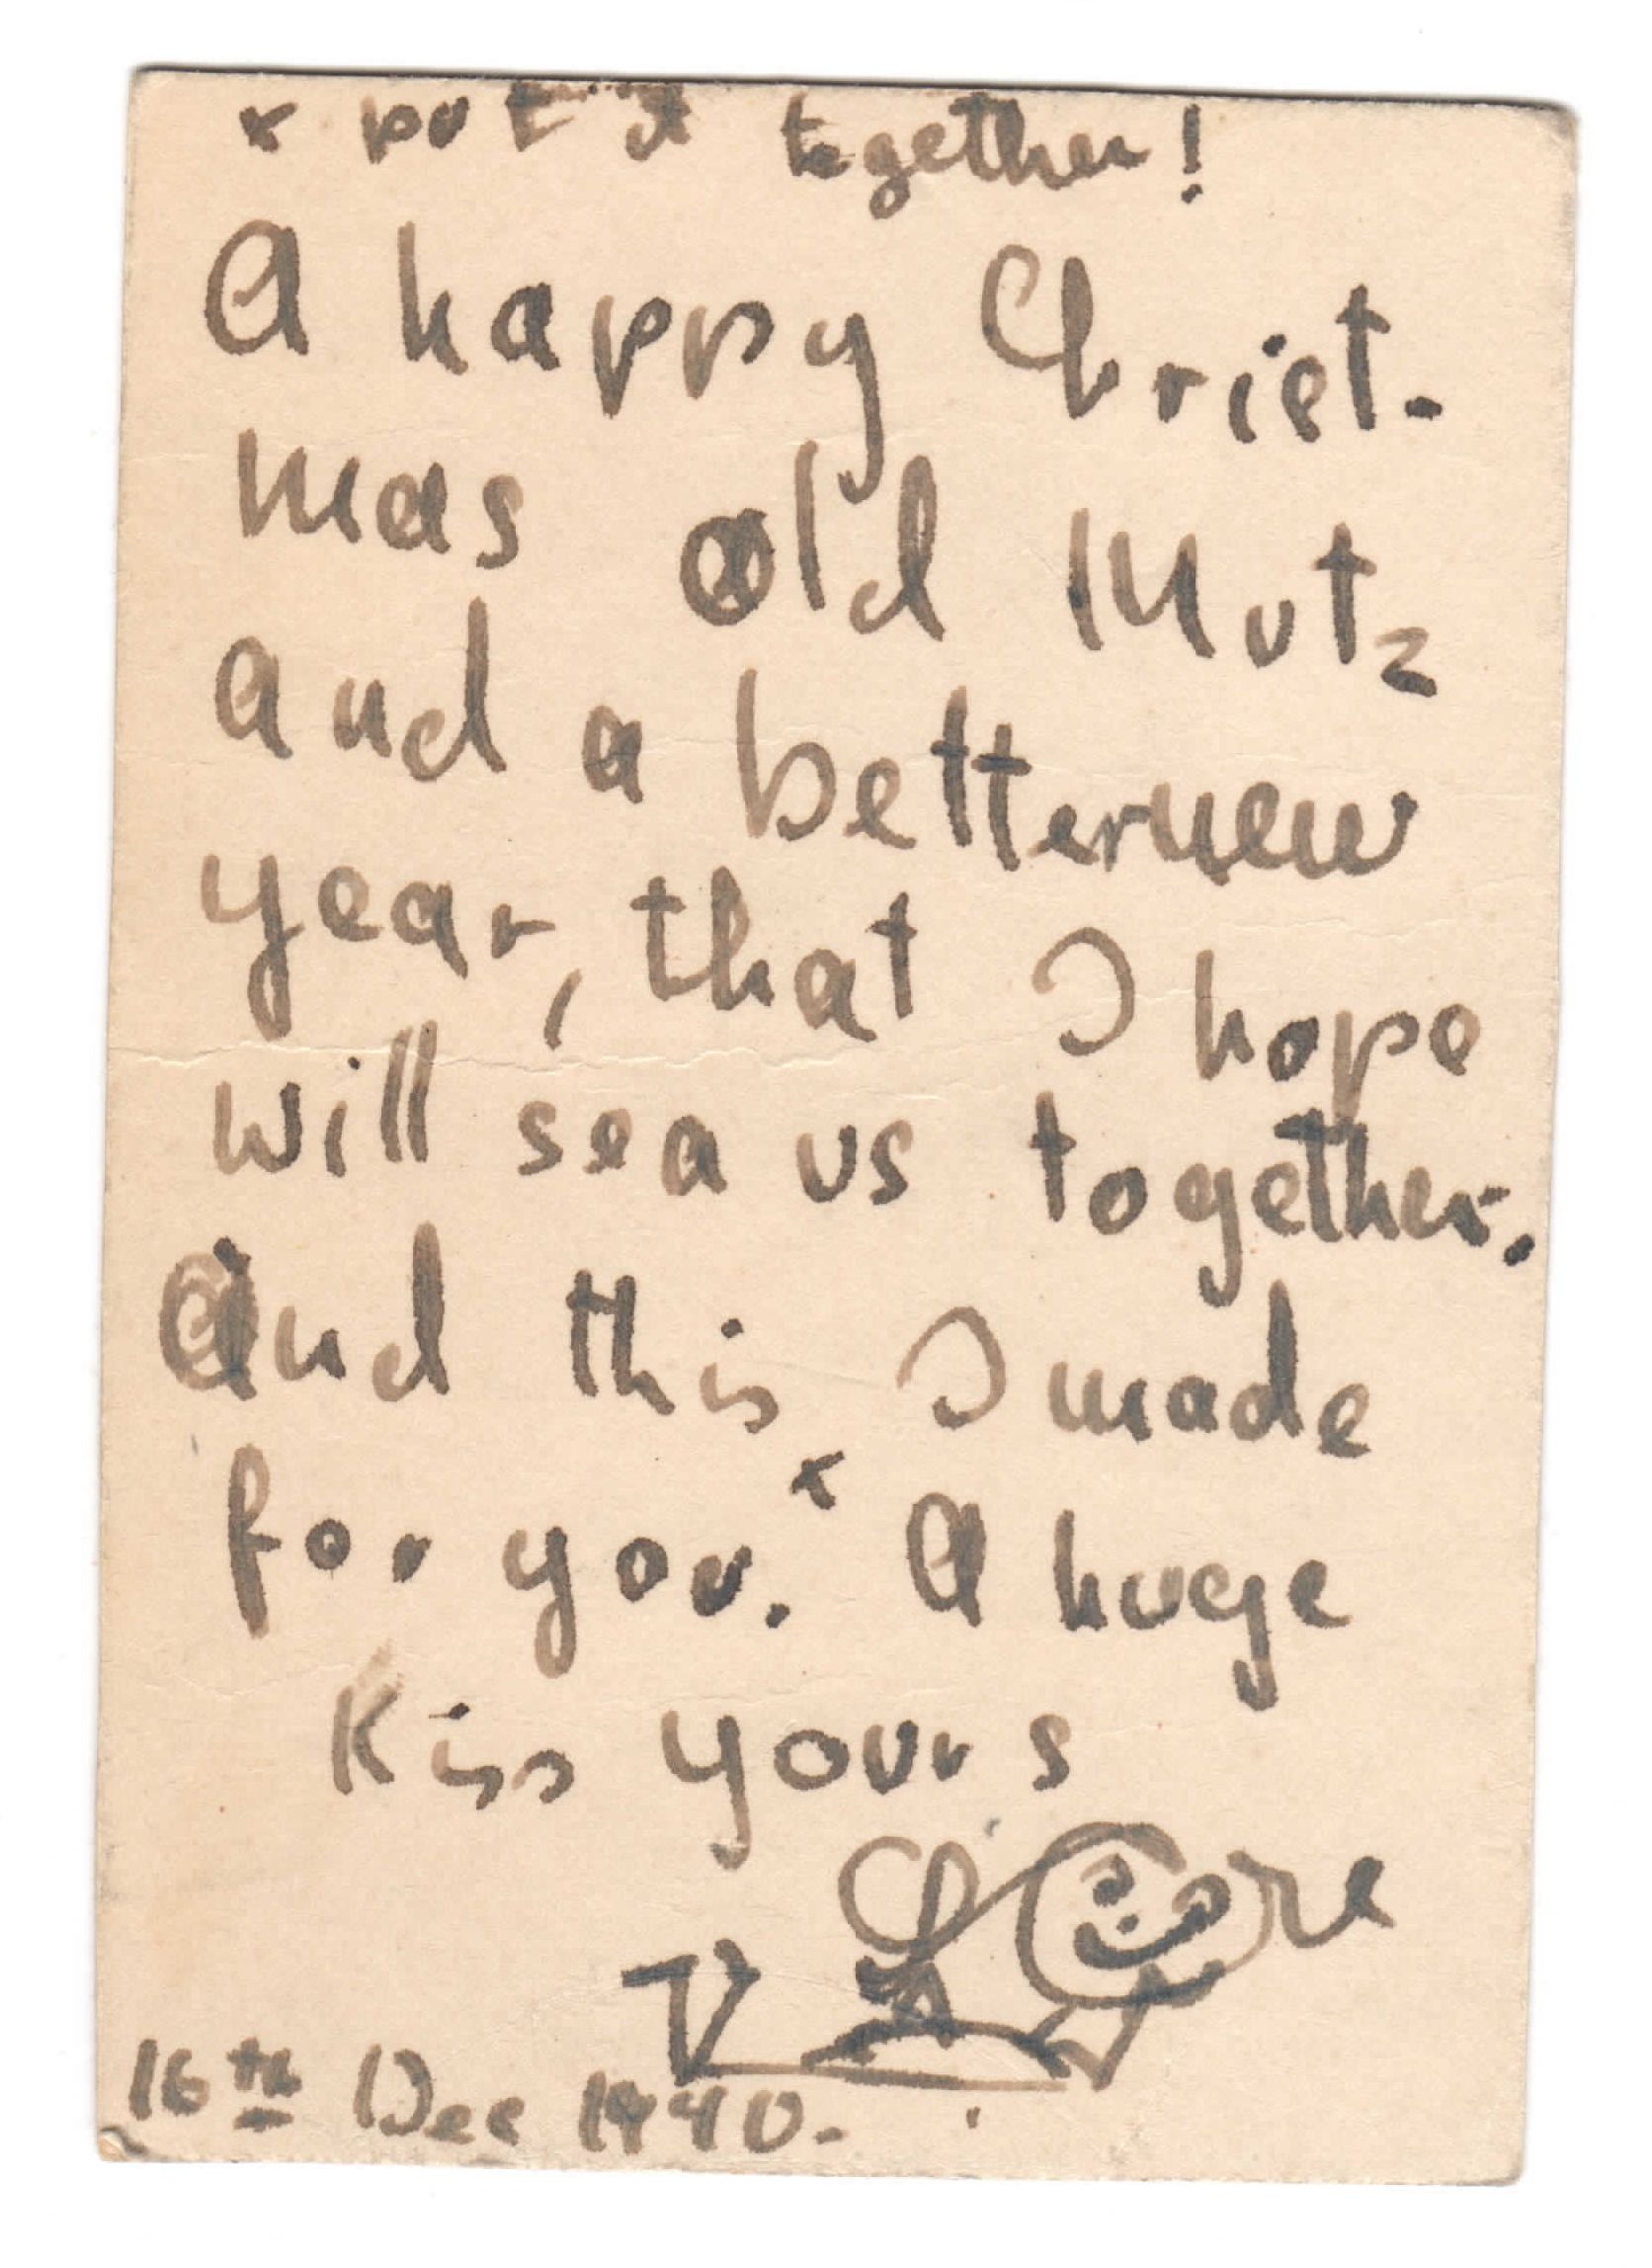 x put it together!
A happy Christ-
mas old Mutz
and a better new
year, that I hope
will sea us together.
And this I made
for you.x A huge
kiss yours
Lore
16th Dec 1940.